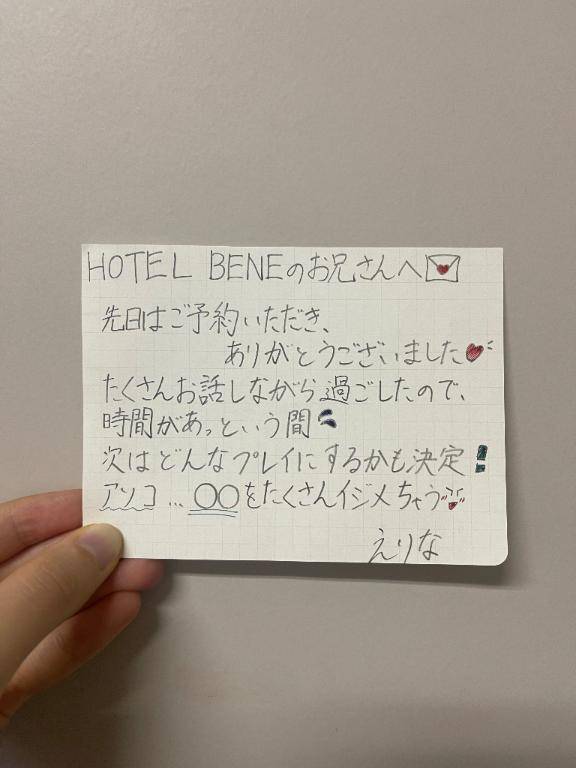 HOTEL BENEのお兄さんへ
先日はご予約いただき、
ありがとうございました
たくさんお話しながら過ごしたので、
時間があっという間
次はどんなプレイにするかも決定!
アソコ...〇〇をたくさんイジメちゃう
えりな